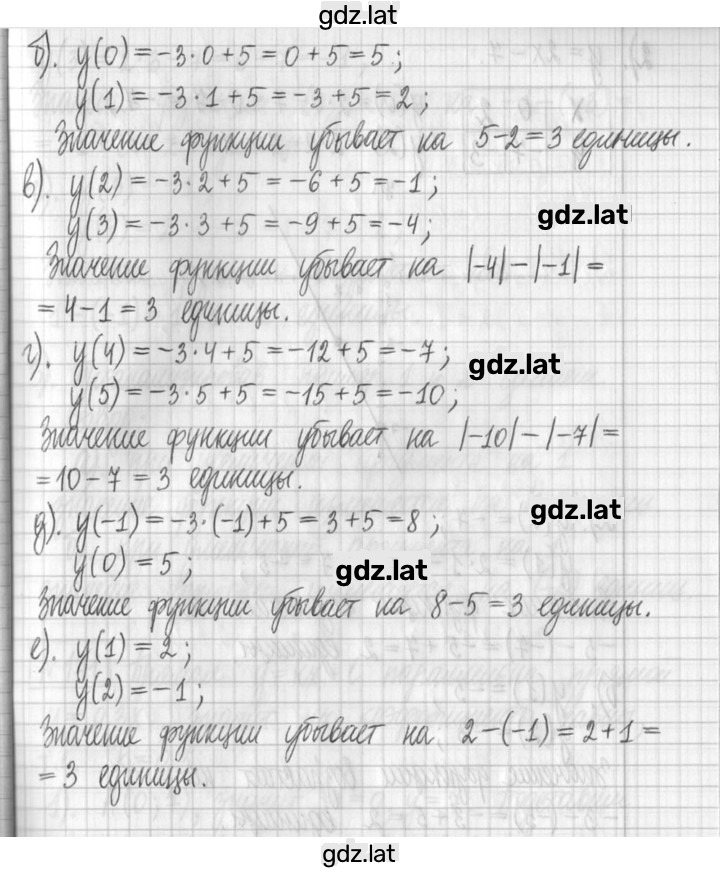 gdz.lat
б). y(0) = -3·0+5 = 0+5 = 5;
y(1) = -3·1+5 = -3+5 = 2;
Значение функции убывает на 5-2=3 единицы.
в). y(2) = -3·2+5 = -6+5 = -1;
y(3) = -3·3+5 = -9+5 = -4;
gdz.lat
Значение функции убывает на |-4|-|-1| =
= 4-1 = 3 единицы.
г). y(4) = -3·4+5 = -12+5 = -7;
gdz.lat
y(5) = -3·5+5 = -15+5 = -10;
Значение функции убывает на |-10|-|-7| =
= 10-7 = 3 единицы.
д). y(-1) = -3·(-1)+5 = 3+5 = 8;
gdz.lat
y(0) = 5;
gdz.lat
Значение функции убывает на 8-5=3 единицы.
е). y(1) = 2;
y(2) = -1;
Значение функции убывает на 2-(-1) = 2+1 =
= 3 единицы.
gdz.lat